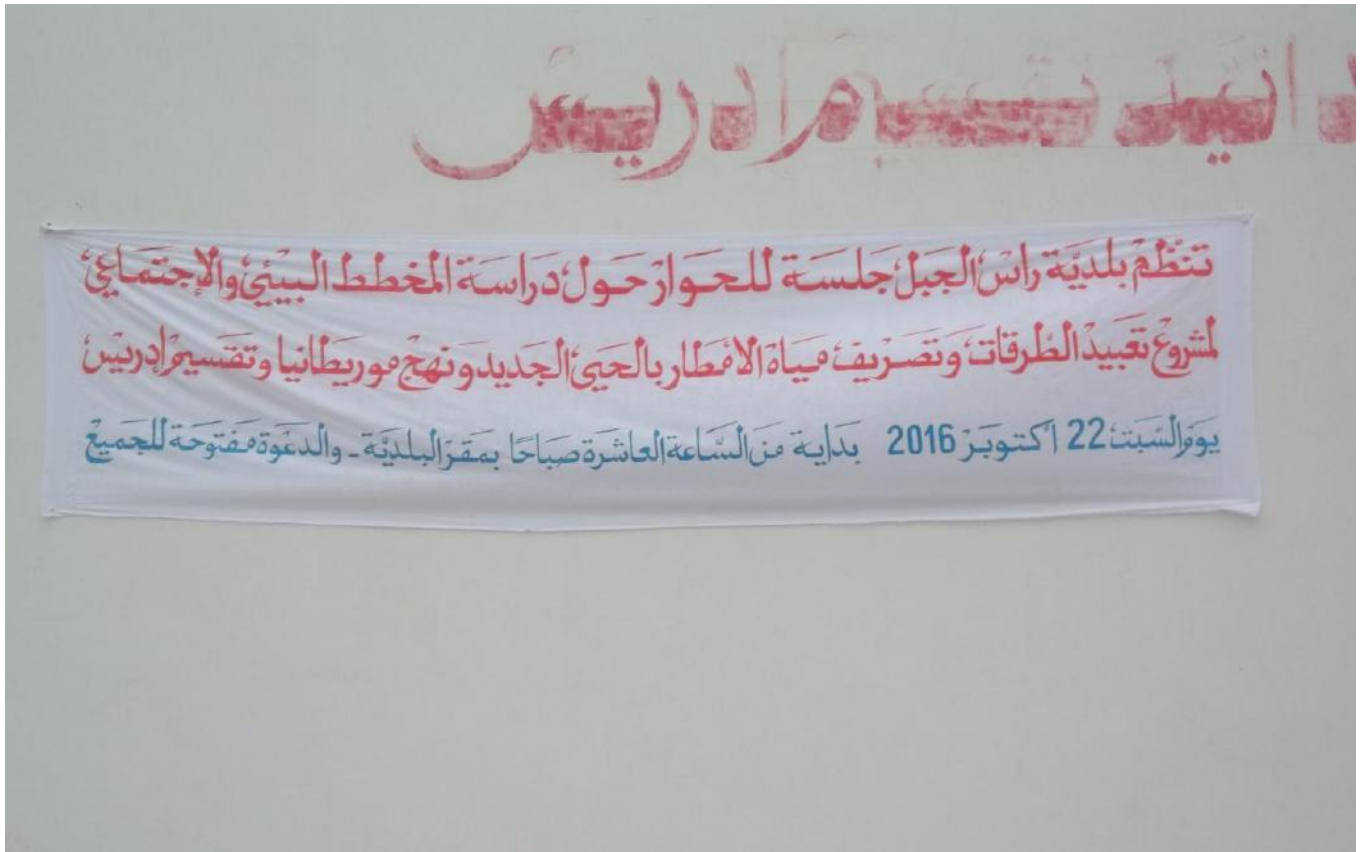 ادريس
تنظم بلديّة راس الجبل جلسة للحوار حول دراسة المخطط البيئي والإجتماعي
لمشروع تعبيد الطرقات وتصريف مياه الامطار بالحي الجديد ونهج موريطانيا وتقسيم إدريس
يوم السّبت 22 اكتوبر 2016 بداية من السّاعة العاشرة صباحا بمقر البلديّة - والدعوة مفتوحة للجميع